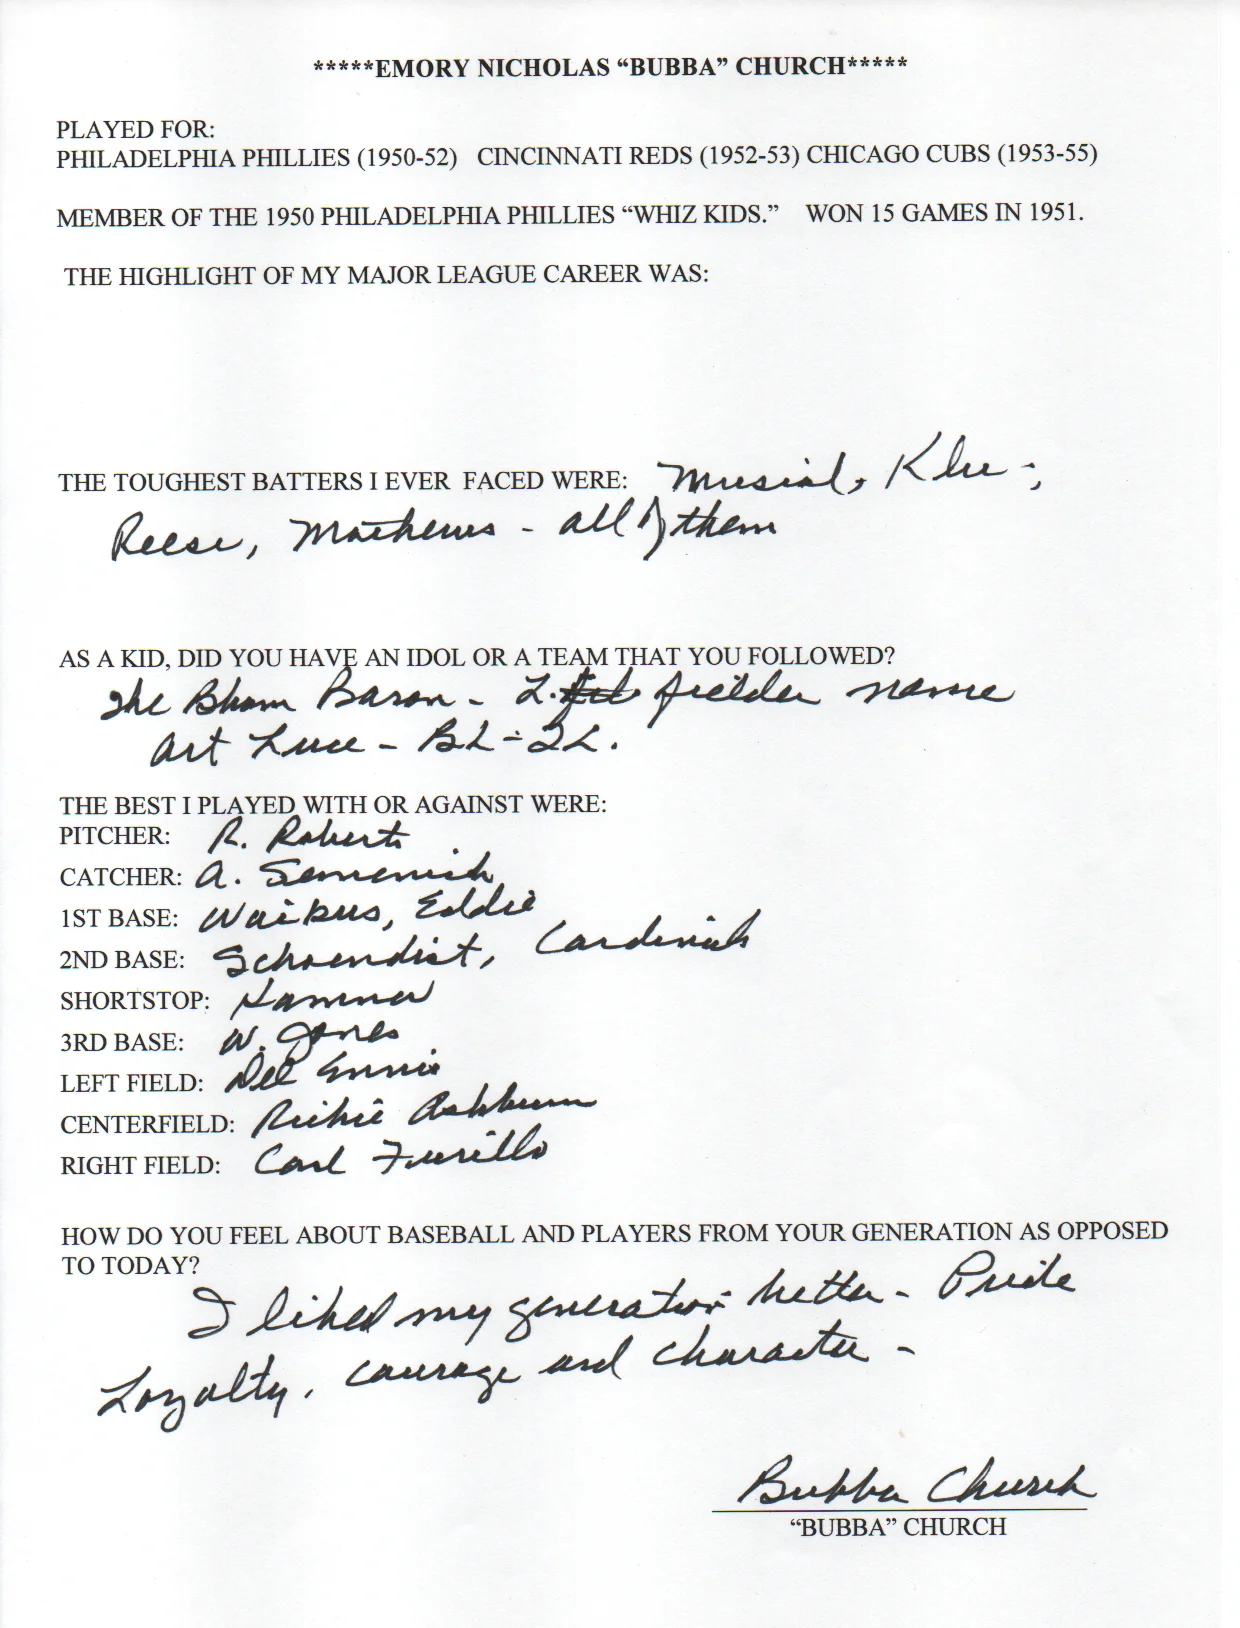 *****EMORY NICHOLAS “BUBBA” CHURCH*****
PLAYED FOR:
PHILADELPHIA PHILLIES (1950-52) CINCINNATI REDS (1952-53) CHICAGO CUBS (1953-55)
MEMBER OF THE 1950 PHILADELPHIA PHILLIES “WHIZ KIDS.” WON 15 GAMES IN 1951.
THE HIGHLIGHT OF MY MAJOR LEAGUE CAREER WAS:
THE TOUGHEST BATTERS I EVER FACED WERE: Musial, Klu-,
Reese, Mathews - all of them
AS A KID, DID YOU HAVE AN IDOL OR A TEAM THAT YOU FOLLOWED?
The Bham Baron - L. fielder name
Art Luce - BL - TL.
THE BEST I PLAYED WITH OR AGAINST WERE:
PITCHER: R. Roberts
CATCHER: A. Semenick
1ST BASE: Waitkus, Eddie
2ND BASE: Schoendist, Cardinals
SHORTSTOP: Hamner
3RD BASE: W. Jones
LEFT FIELD: Del Ennis
CENTERFIELD: Richie Ashburn
RIGHT FIELD: Carl Furillo
HOW DO YOU FEEL ABOUT BASEBALL AND PLAYERS FROM YOUR GENERATION AS OPPOSED
TO TODAY?
I liked my generation better - Pride
Loyalty, courage and character -
Bubba Church
“BUBBA” CHURCH